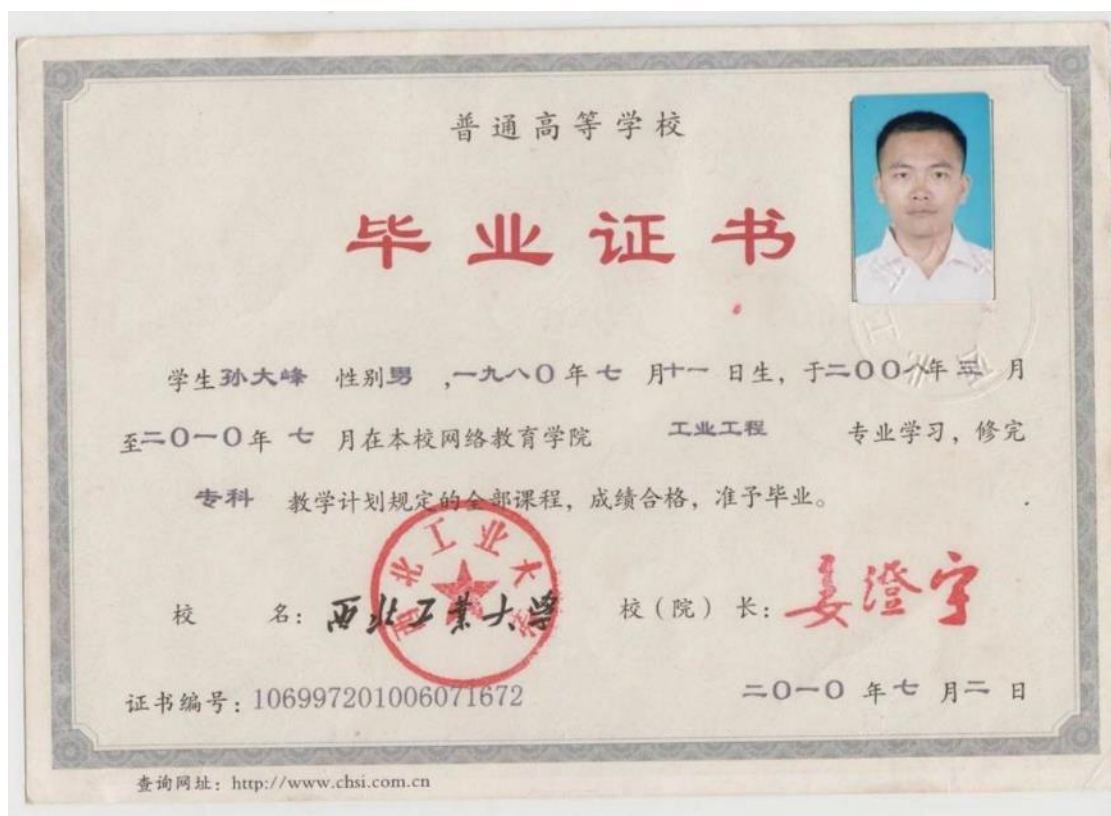 普通高等学校
毕业证书
学生孙大峰 性别男 ,一九八〇年七月十一日生，于二〇〇八年三月
至二〇一〇年七月在本校网络教育学院 工业工程 专业学习，修完
专科 教学计划规定的全部课程，成绩合格，准予毕业。
西北工业大学
校 名：西北工业大学 校（院）长：姜澄宇
证书编号：106997201006071672 二〇一〇年七月二日
查询网址：http://www.chsi.com.cn